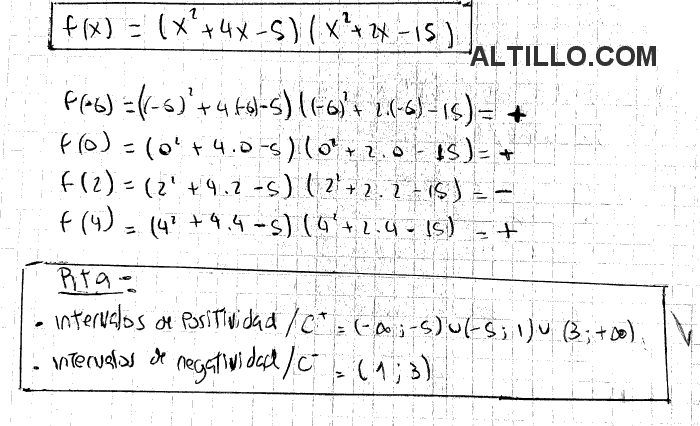 f(x) = (x² + 4x - 5) (x² + 2x - 15)
ALTILLO.COM
f(-6) = ((-6)² + 4(-6) - 5) ((-6)² + 2.(-6) - 15) = +
f(0) = (0² + 4.0 - 5) (0² + 2.0 - 15) = +
f(2) = (2² + 4.2 - 5) (2² + 2.2 - 15) = -
f(4) = (4² + 4.4 - 5) (4² + 2.4 - 15) = +
Rta =
• intervalos de Positividad / C⁺ = (-∞; -5) ∪ (-5; 1) ∪ (3; +∞).
• intervalos de negatividad / C⁻ = (1; 3)